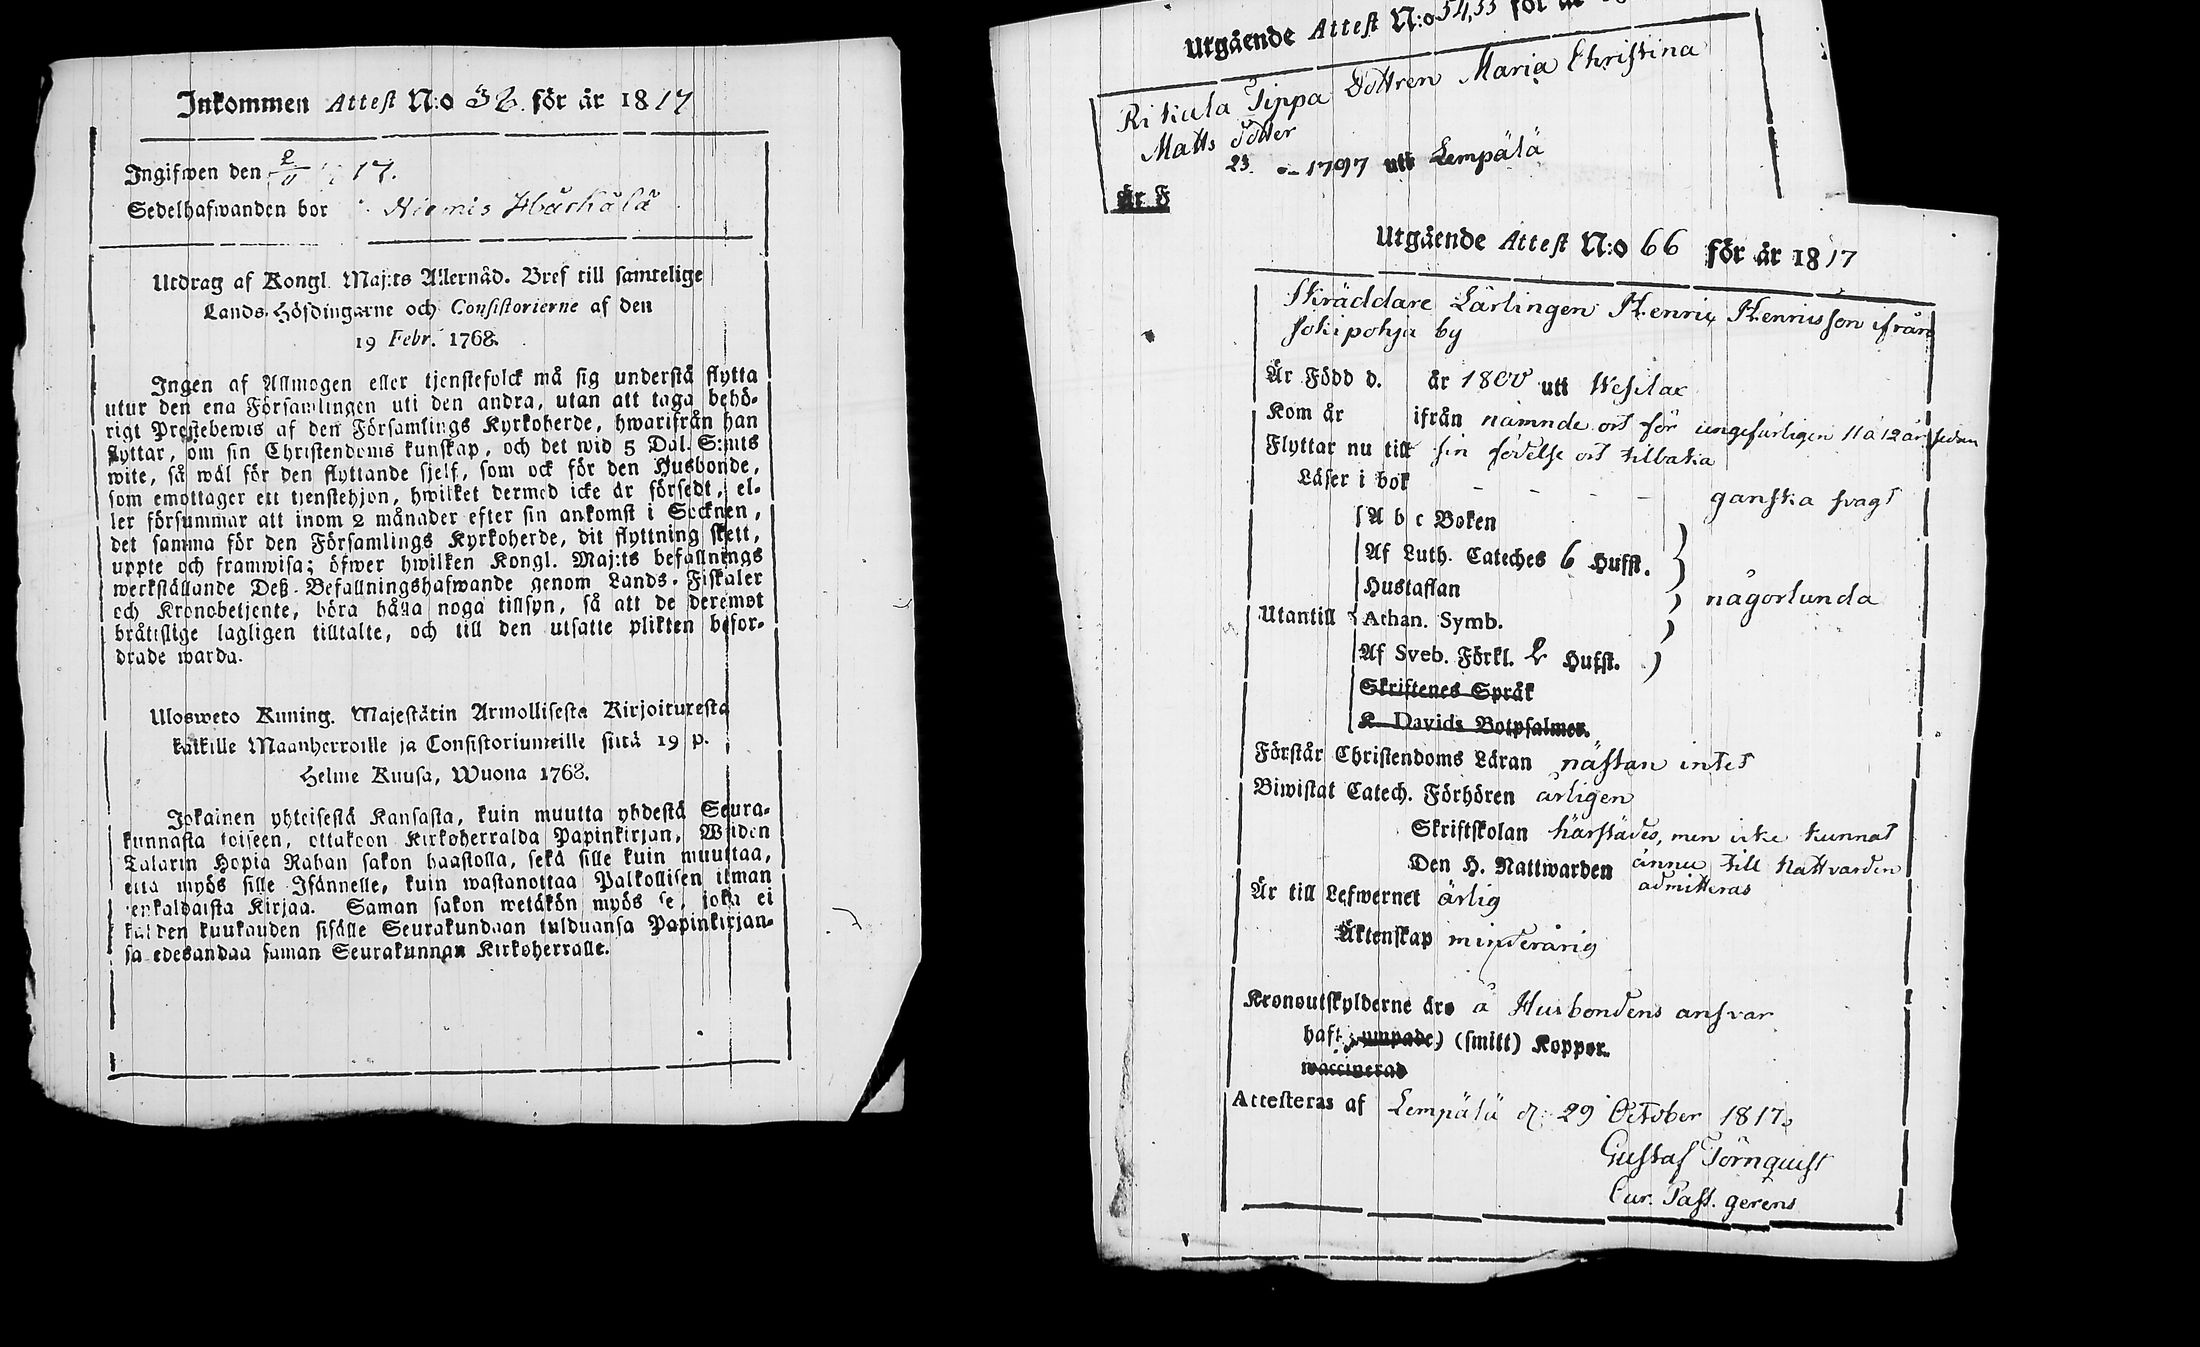 Inkommen Attest N:o 32. för år 1817
Ingifwen den 2/11 17.
Sedelhafwanden bor Niemis Harhala
Utdrag af Kongl. Maj:ts Allernåd. Bref till samtelige
Lands-Höfdingarne och Consistorierne af den
19 Febr. 1768.
Ingen af Allmogen eller tjenstefolck må sig understå flytta
utur den ena Församlingen uti den andra, utan att taga behö-
rigt Prestebewis af den Församlings Kyrkoherde, hwarifrån han
flyttar, om sin Christendoms kunskap, och det wid 5 Dal. S:mts
wite, så wäl för den flyttande sjelf, som ock för den Husbonde,
som emottager ett tjenstehjon, hwilket dermed icke är försedt, el-
ler försummar att inom 2 månader efter sin ankomst i Socknen,
det samma för den Församlings Kyrkoherde, dit flyttning skett,
uppte och framwisa; öfwer hwilken Kongl. Maj:ts befallnings
werkställande Deß Befallningshafwande genom Lands-Fiskaler
och Kronobetjente, böra hålla noga tillsyn, så att de deremot
bråtislige lagligen tilltalte, och till den utsatte plikten befor-
drade warda.
Ulosweto Kuning. Majestätin Armollisesta Kirjoituresta
kaikille Maanherroille ja Consistoriumeille siitä 19 p.
Helme Kuusa, Wuona 1768.
Jokainen yhteisestä Kansasta, kuin muutta yhdestä Seura-
kunnasta toiseen, ottakoon Kirkoherralda Papinkirjan, Wiiden
Talarin Hopia Rahan sakon haastolla, sekä sille kuin muuttaa,
että myös sille Isännelle, kuin wastanottaa Palkollisen ilman
senkaldaista Kirjaa. Saman sakon wetäkön myös se, joka ei
kahden kuukauden sisälle Seurakundaan tulduansa Papinkirjan-
sa edesandaa saman Seurakunnan Kirkoherralle.
Utgående Attest N:o 54,55 för år
Rikala Tippa Dottren Maria Christina
Matts dotter
23 1797 uti Lempälä
Är F
Utgående Attest N:o 66 för år 1817
Skräddare Lärlingen Henric Henricsson ifrån
Jokipohja by
Är Född d. år 1800 uti Wesilax
Kom år ifrån nämnde ort för ungefärligen 11 a 12 år sedan
Flyttar nu till sin födelse ort tilbaka
Läser i bok - - - - ganska svagt
A b c Boken
Af Luth. Cateches 6 Hufst.
Hustaflan någorlunda
Utantill Athan. Symb.
Af Sveb. Förkl. 2 Hufst.
Skriftenes Språk
K. Davids Botpsalmer.
Förstår Christendoms Läran nästan intet
Biwistat Catech. Förhören årligen
Skriftskolan härstädes, men icke kunnat
Den H. Nattwarden ännu till Nattvarden
admitteras
Är till Lefwernet ärlig
Äktenskap minderårig
Kronoutskylderne äro å Husbondens ansvar
haft (ympade) (smitt) Koppor.
waccinerad
Attesteras af Lempälä d. 29 October 1817.
Gustaf Törnquist
Cur. Past. gerens